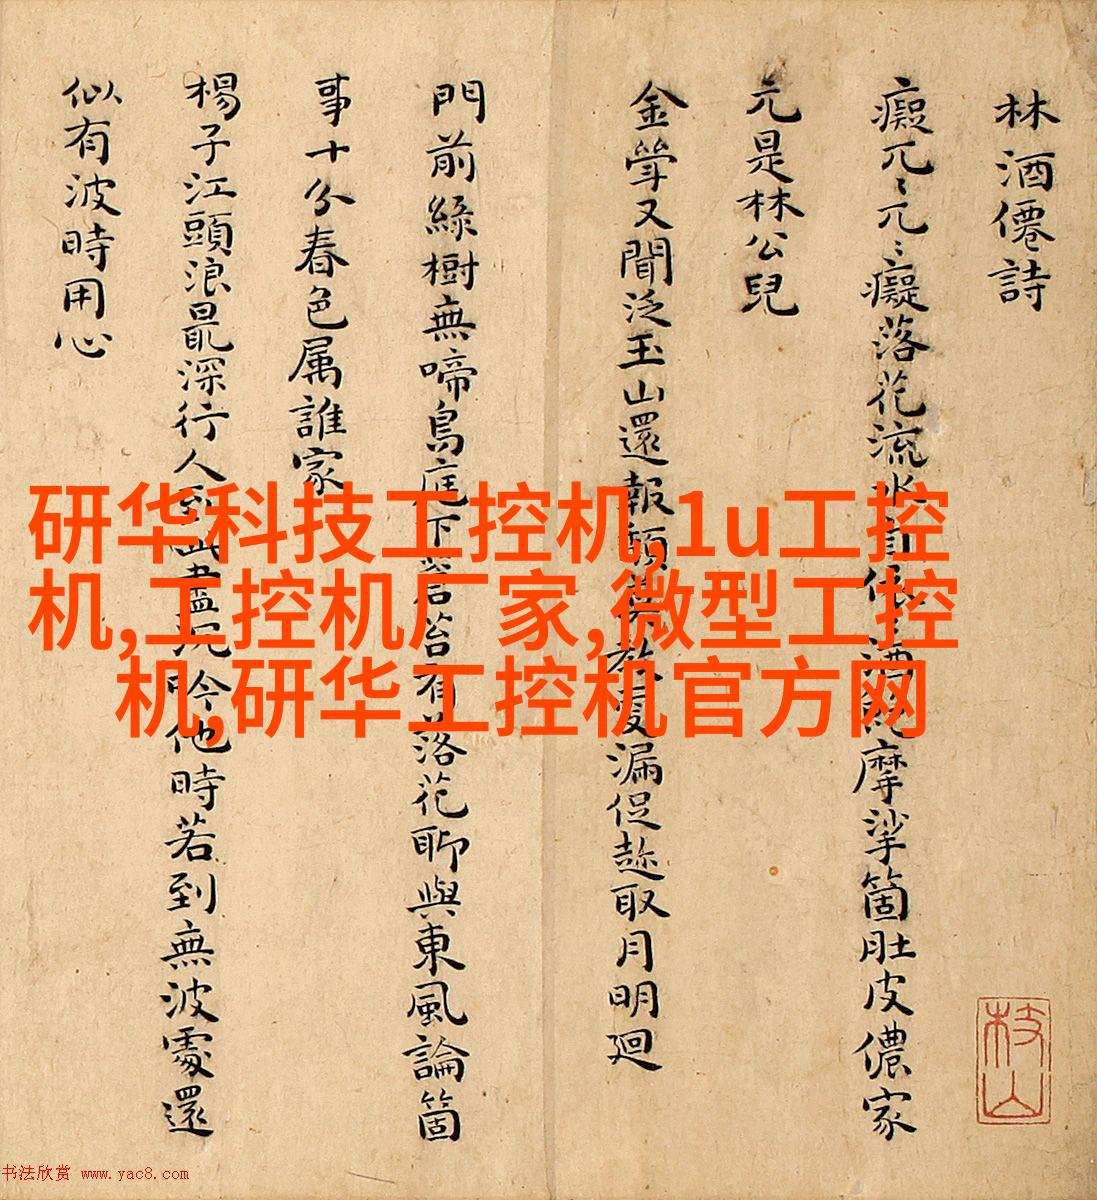 林酒僊詩
癡兀〻兀〻癡落花流水自依 酒 摩挲箇肚皮儂家
元是林公兒
金斝又聞泛玉山還報頹 教更漏促趂取月明廻
門前緑樹無啼鳥庭下蒼苔有落花聊與東風論箇
事十分春色属誰家
楊子江頭浪㝡深行人到此盡沉吟他時若到無波處還
似有波時用心
枝山
研华科技工控机,1u工控
机,工控机厂家,微型工控
机,研华工控机官方网
书法欣赏 www.yac8.com